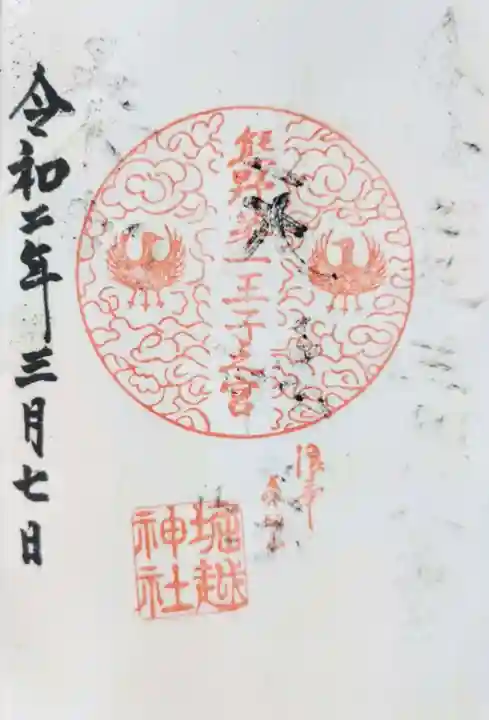 熊野第一王子之宮
浪華
堀越
神社
令和二年三月七日